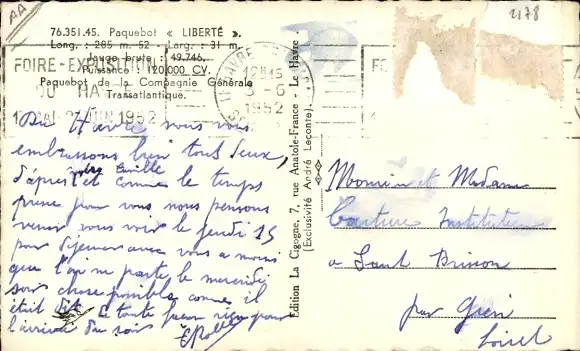 AA
2178
76.351.45. Paquebot « LIBERTÉ ».
Long. : 285 m. 52 - Larg. : 31 m.
Jauge brute : 49.746.
Puissance : 120.000 CV.
Paquebot de la Compagnie Générale
Transatlantique.
FOIRE-EXPOSITION
DU HAVRE
JUIN 1952
LE HAVRE
12H15
6
1952
Du Havre nous vous
embrassons bien tous deux,
d'après votre famille et comme le temps
presse pour vous nous pensons
venir vous voir le jeudi 15
pour déjeuner avec vous a moins
que l'on ne parte le mercredi
soir chose possible comme il
était dit a toute façon rien pour
l'arrivée du soir
Edition La Cigogne, 7, rue Anatole-France - Le Havre.
(Exclusivité André Leconte).
Monsieur et Madame
Instituteur
a Saint
par Gien
Loiret